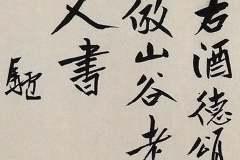 右酒德頌
倣山谷老
人書